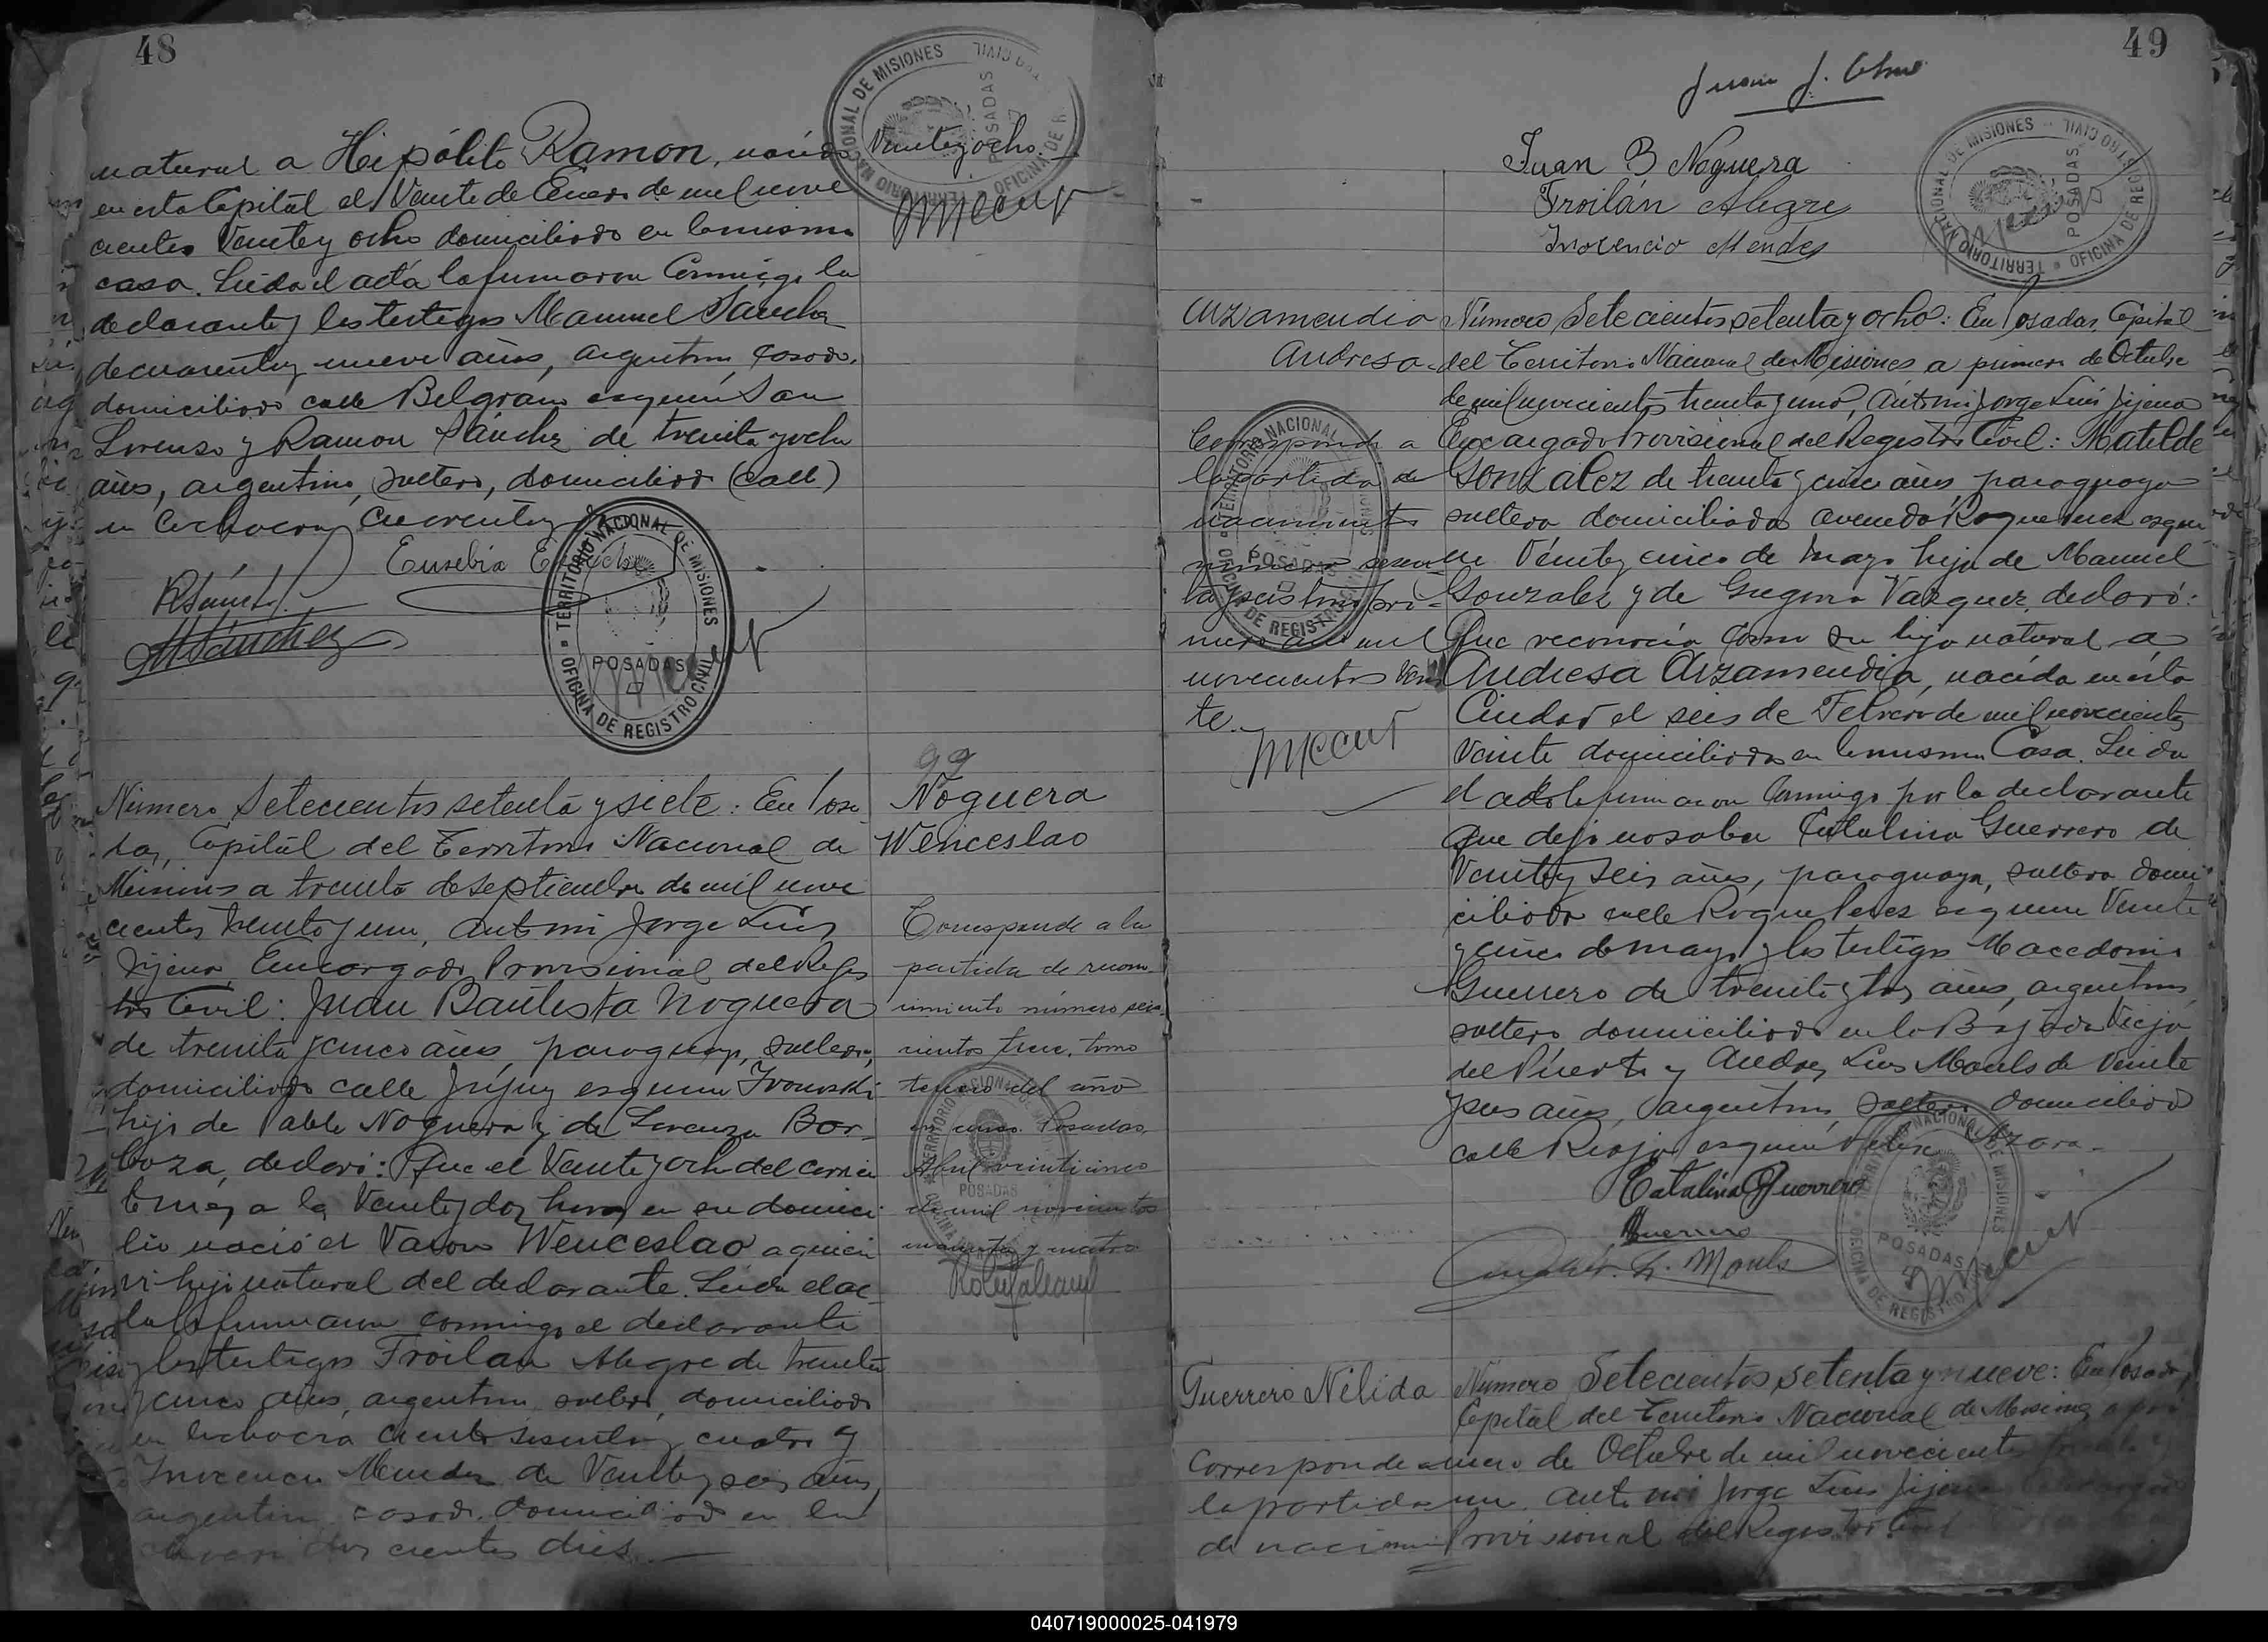 48
natural a Hipólito Ramon, nacido
en esta Capital el Veinte de Enero de mil nove
cientos Veinte y ocho domiciliado en la misma
casa. Leida el acta la firmaron Conmigo la
declarante y los testigos Manuel Sanchez
de cuarenta y nueve años, argentino, casado,
domiciliado calle Belgrano esquina San
Lorenzo y Ramon Sánchez de treinta y ocho
años, argentino, soltero, domiciliado (calle)
en la chacra Cuarenta y
Eusebia
RSánchez
MSánchez
Veinte y ocho.
TERRITORIO NACIONAL DE MISIONES
OFICINA DE REGISTRO CIVIL
POSADAS
Número Setecientos setenta y siete: En Posa
das, Capital del Territorio Nacional de
Misiones a treinta de septiembre de mil nove
cientos treinta y uno, ante mi Jorge Luis
Jijena, Encargado Provisional del Regis
tro Civil: Juan Bautista Noguera
de treinta y cinco años, paraguayo, soltero,
domiciliado calle Jujuy esquina Ivanowski
hijo de Pablo Noguera y de Lorenza Bor-
boza, declaró: Que el Veinte y ocho del corrien
te mes a las Veinte y dos horas en su domici
lio nació el Varon Wenceslao a quien
hijo natural del declarante. Leida el ac
ta la firmaron conmigo el declarante
y los testigos Froilan Alegre de treinta
y cinco años, argentino, soltero, domiciliado
en la chacra ciento sesenta y cuatro y
Inocencio Mendez de Veinte y seis años,
argentino, casado, domiciliado en la
chacra dos cientos dies.
99
Noguera
Wenceslao
Corresponde a la
partida de recono-
cimiento número seis-
cientos trece, tomo
tercero del año
en curso. Posadas,
Abril veinticinco
de mil novecientos
cuarenta y cuatro
49
Juan J.
Juan B Noguera
Froilán Alegre
Inocencio Mendes
TERRITORIO NACIONAL DE MISIONES
OFICINA DE REGISTRO CIVIL
POSADAS
Arzamendia
Andresa
Corresponde a
la partida de
nacimiento
número sesen-
ta y seis tomo pri-
mero año mil
novecientos vein
te.
Número Setecientos setenta y ocho: En Posadas, Capital
del Territorio Nacional de Misiones a primero de Octubre
de mil novecientos treinta y uno, ante mi Jorge Luis Jijena
Encargado Provisional del Registro Civil: Matilde
Gonzalez de treinta y cinco años, paraguaya
soltera domiciliada avenida Roque Perez esqui
na Veinte y cinco de Mayo hija de Manuel
Gonzalez y de Gregoria Vazquez, declaró:
Que reconocia como su hija natural a
Andresa Arzamendia, nacida en ésta
Ciudad el seis de Febrero de mil novecientos
Veinte domiciliada en la misma Casa. Leida
el acta la firmaron Conmigo por la declarante
que dijo no saber Catalina Guerrero de
Veinte y seis años, paraguaya, soltera domi
ciliada calle Roque Perez esquina Veinte
y cinco de mayo y los testigos Macedonio
Guerrero de treinta y tres años, argentino,
soltero domiciliado en la Bajada Vieja
del Puerto y Andres Luis Mouls de Veinte
y seis años, argentino, soltero domiciliado
calle Rioja esquina Felix Azara.
Catalina Guerrero
Guerrero
Andrés L. Mouls
TERRITORIO NACIONAL DE MISIONES
OFICINA DE REGISTRO CIVIL
POSADAS
Guerrero Nélida
Corresponde a
la partida
de nacimien
Número Setecientos setenta y nueve: En Posadas,
Capital del Territorio Nacional de Misiones a pri
mero de Octubre de mil novecientos treinta y
uno, ante mi Jorge Luis Jijena Encargado
Provisional del Registro Civil
040719000025-041979